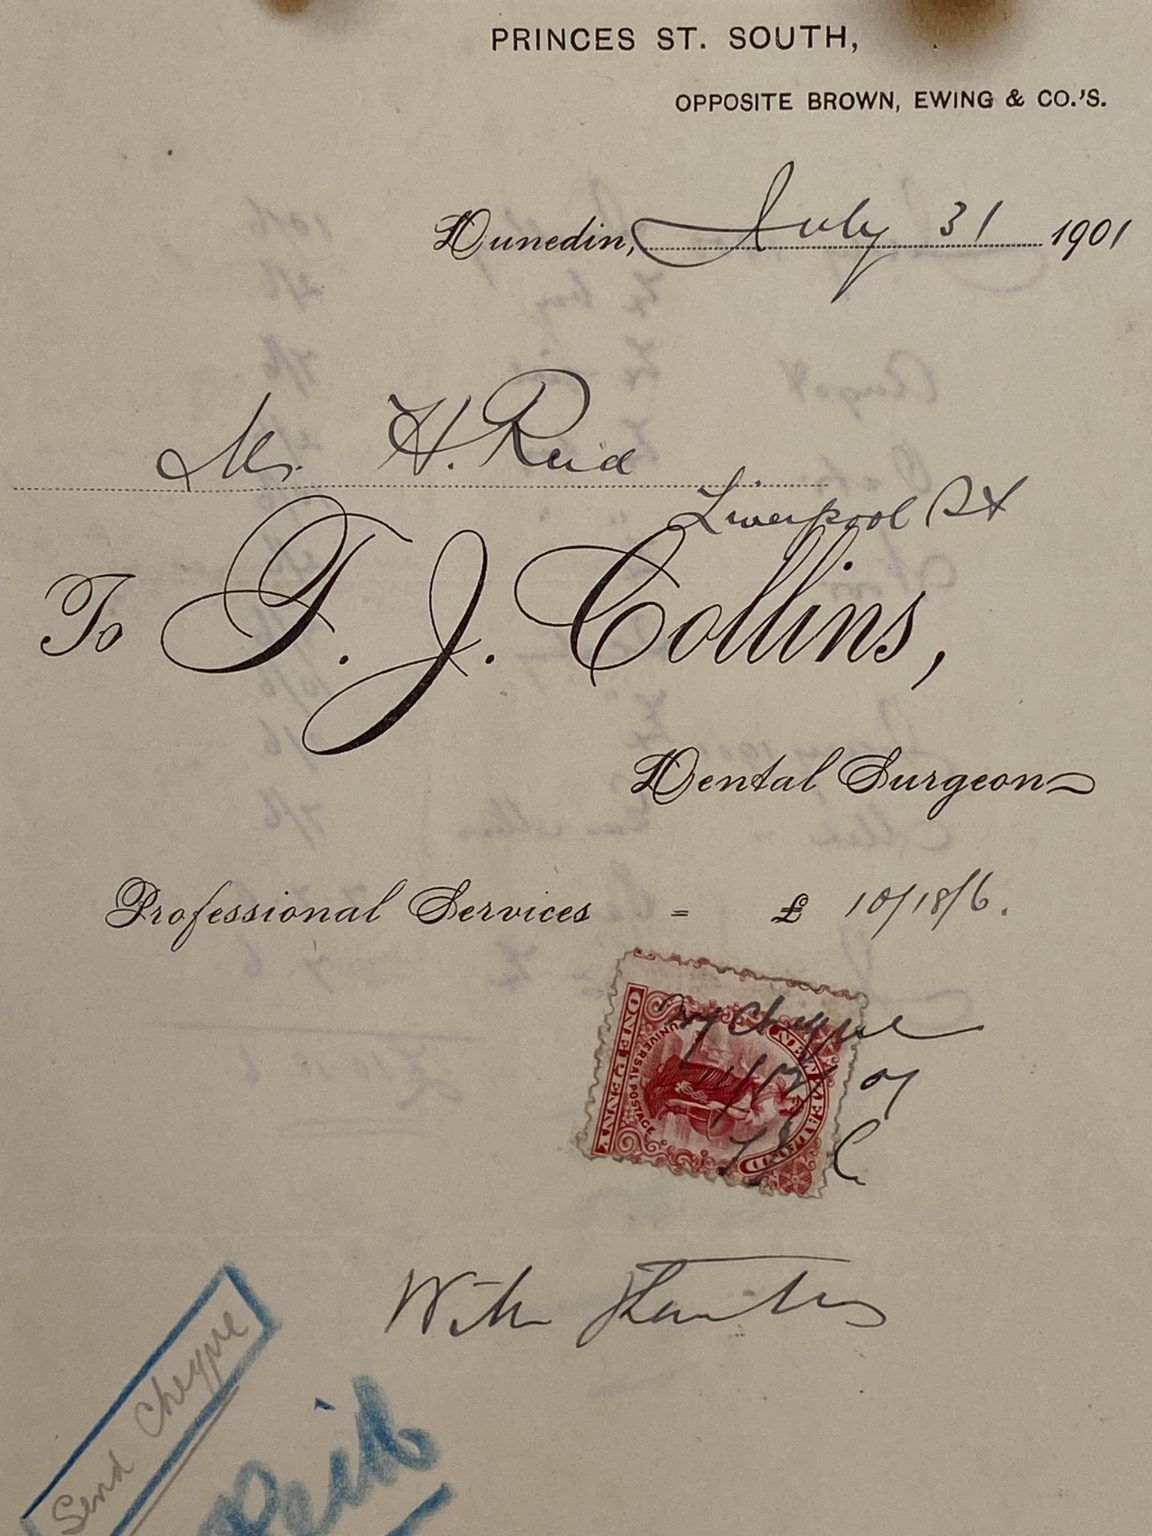 PRINCES ST. SOUTH,
OPPOSITE BROWN, EWING & CO.'S.
Dunedin, July 31 1901
Mr. H. Reid
Liverpool St
To T. J. Collins,
Dental Surgeon
Professional Services = £ 10/18/6.
ONE PENNY
UNIVERSAL POSTAGE
NEW ZEALAND
By cheque
01
With thanks
Send Cheque
Paid